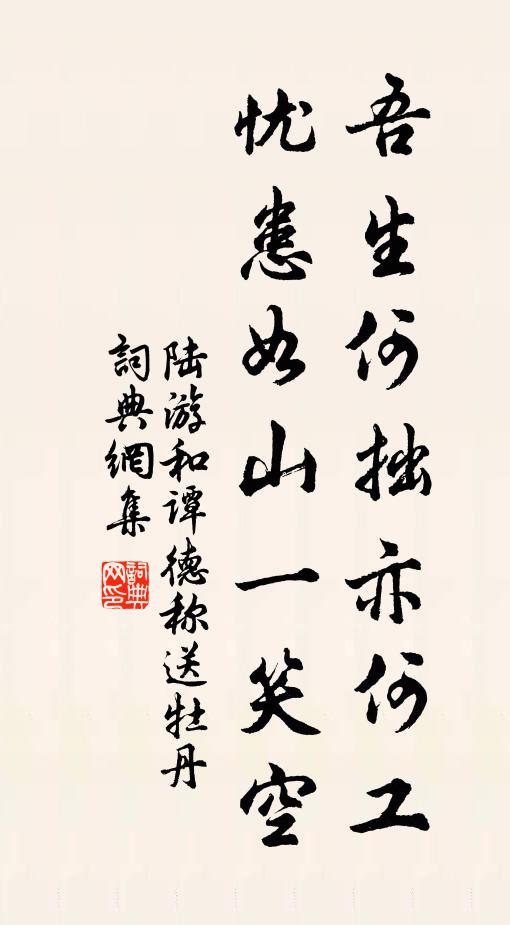 吾生何拙亦何工
忧患如山一笑空
陆游和谭德称送牡丹
詞典網集
詞典
网印